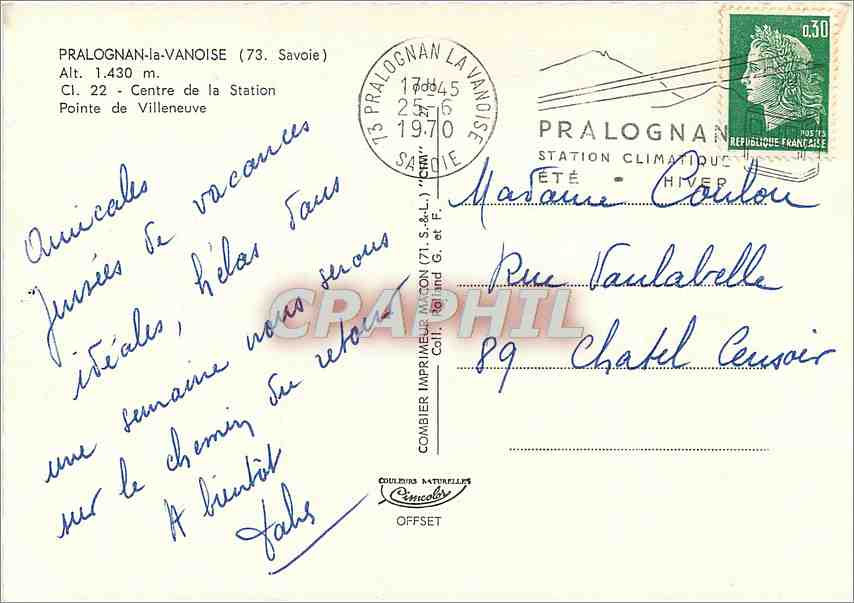 PRALOGNAN-la-VANOISE (73. Savoie)
Alt. 1.430 m.
Cl. 22 - Centre de la Station
Pointe de Villeneuve
73 PRALOGNAN LA VANOISE
17H45
25-6
1970
SAVOIE
PRALOGNAN
STATION CLIMATIQUE
ÉTÉ - HIVER
0,30
POSTES
REPUBLIQUE FRANÇAISE
Amicales
pensées de vacances
idéales, hélas dans
une semaine nous serons
sur le chemin du retour
A bientôt
COMBIER IMPRIMEUR MACON (71. S.-&-L.) "CIM"
Coll. Rolland G. et F.
Madame Coulon
Rue Vaulabelle
89 Chatel Censoir
CRAPHIL
COULEURS NATURELLES
Cimcolor
OFFSET